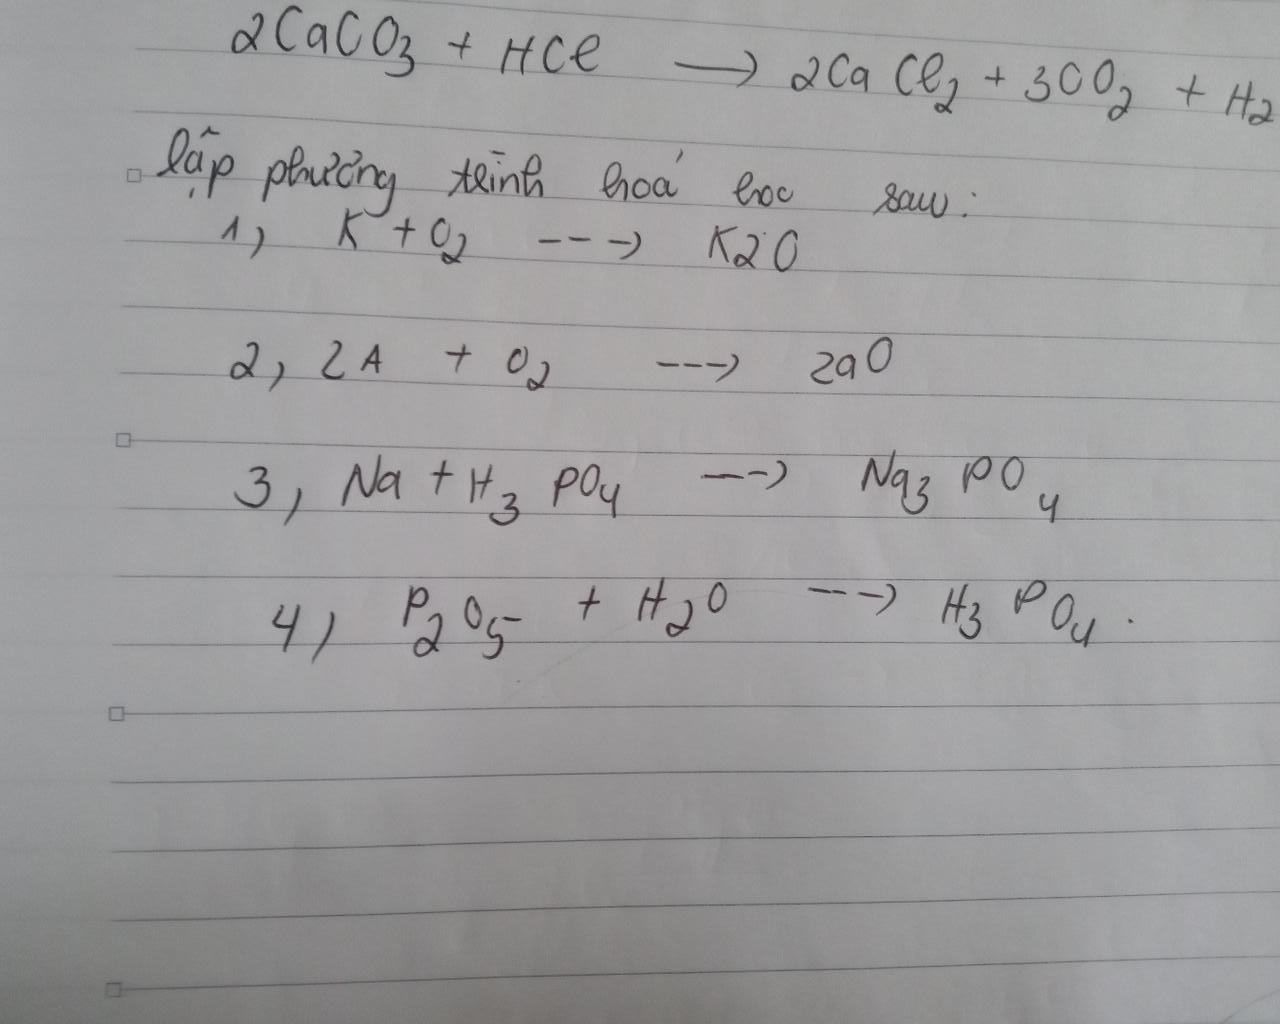 2CaCO3 + HCl → 2CaCl2 + 3CO2 + H2
lập phương trình hoá học sau:
1, K + O2 ---> K2O
2, ZA + O2 ---> zaO
3, Na + H3PO4 ---> Na3PO4
4, P2O5 + H2O ---> H3PO4.